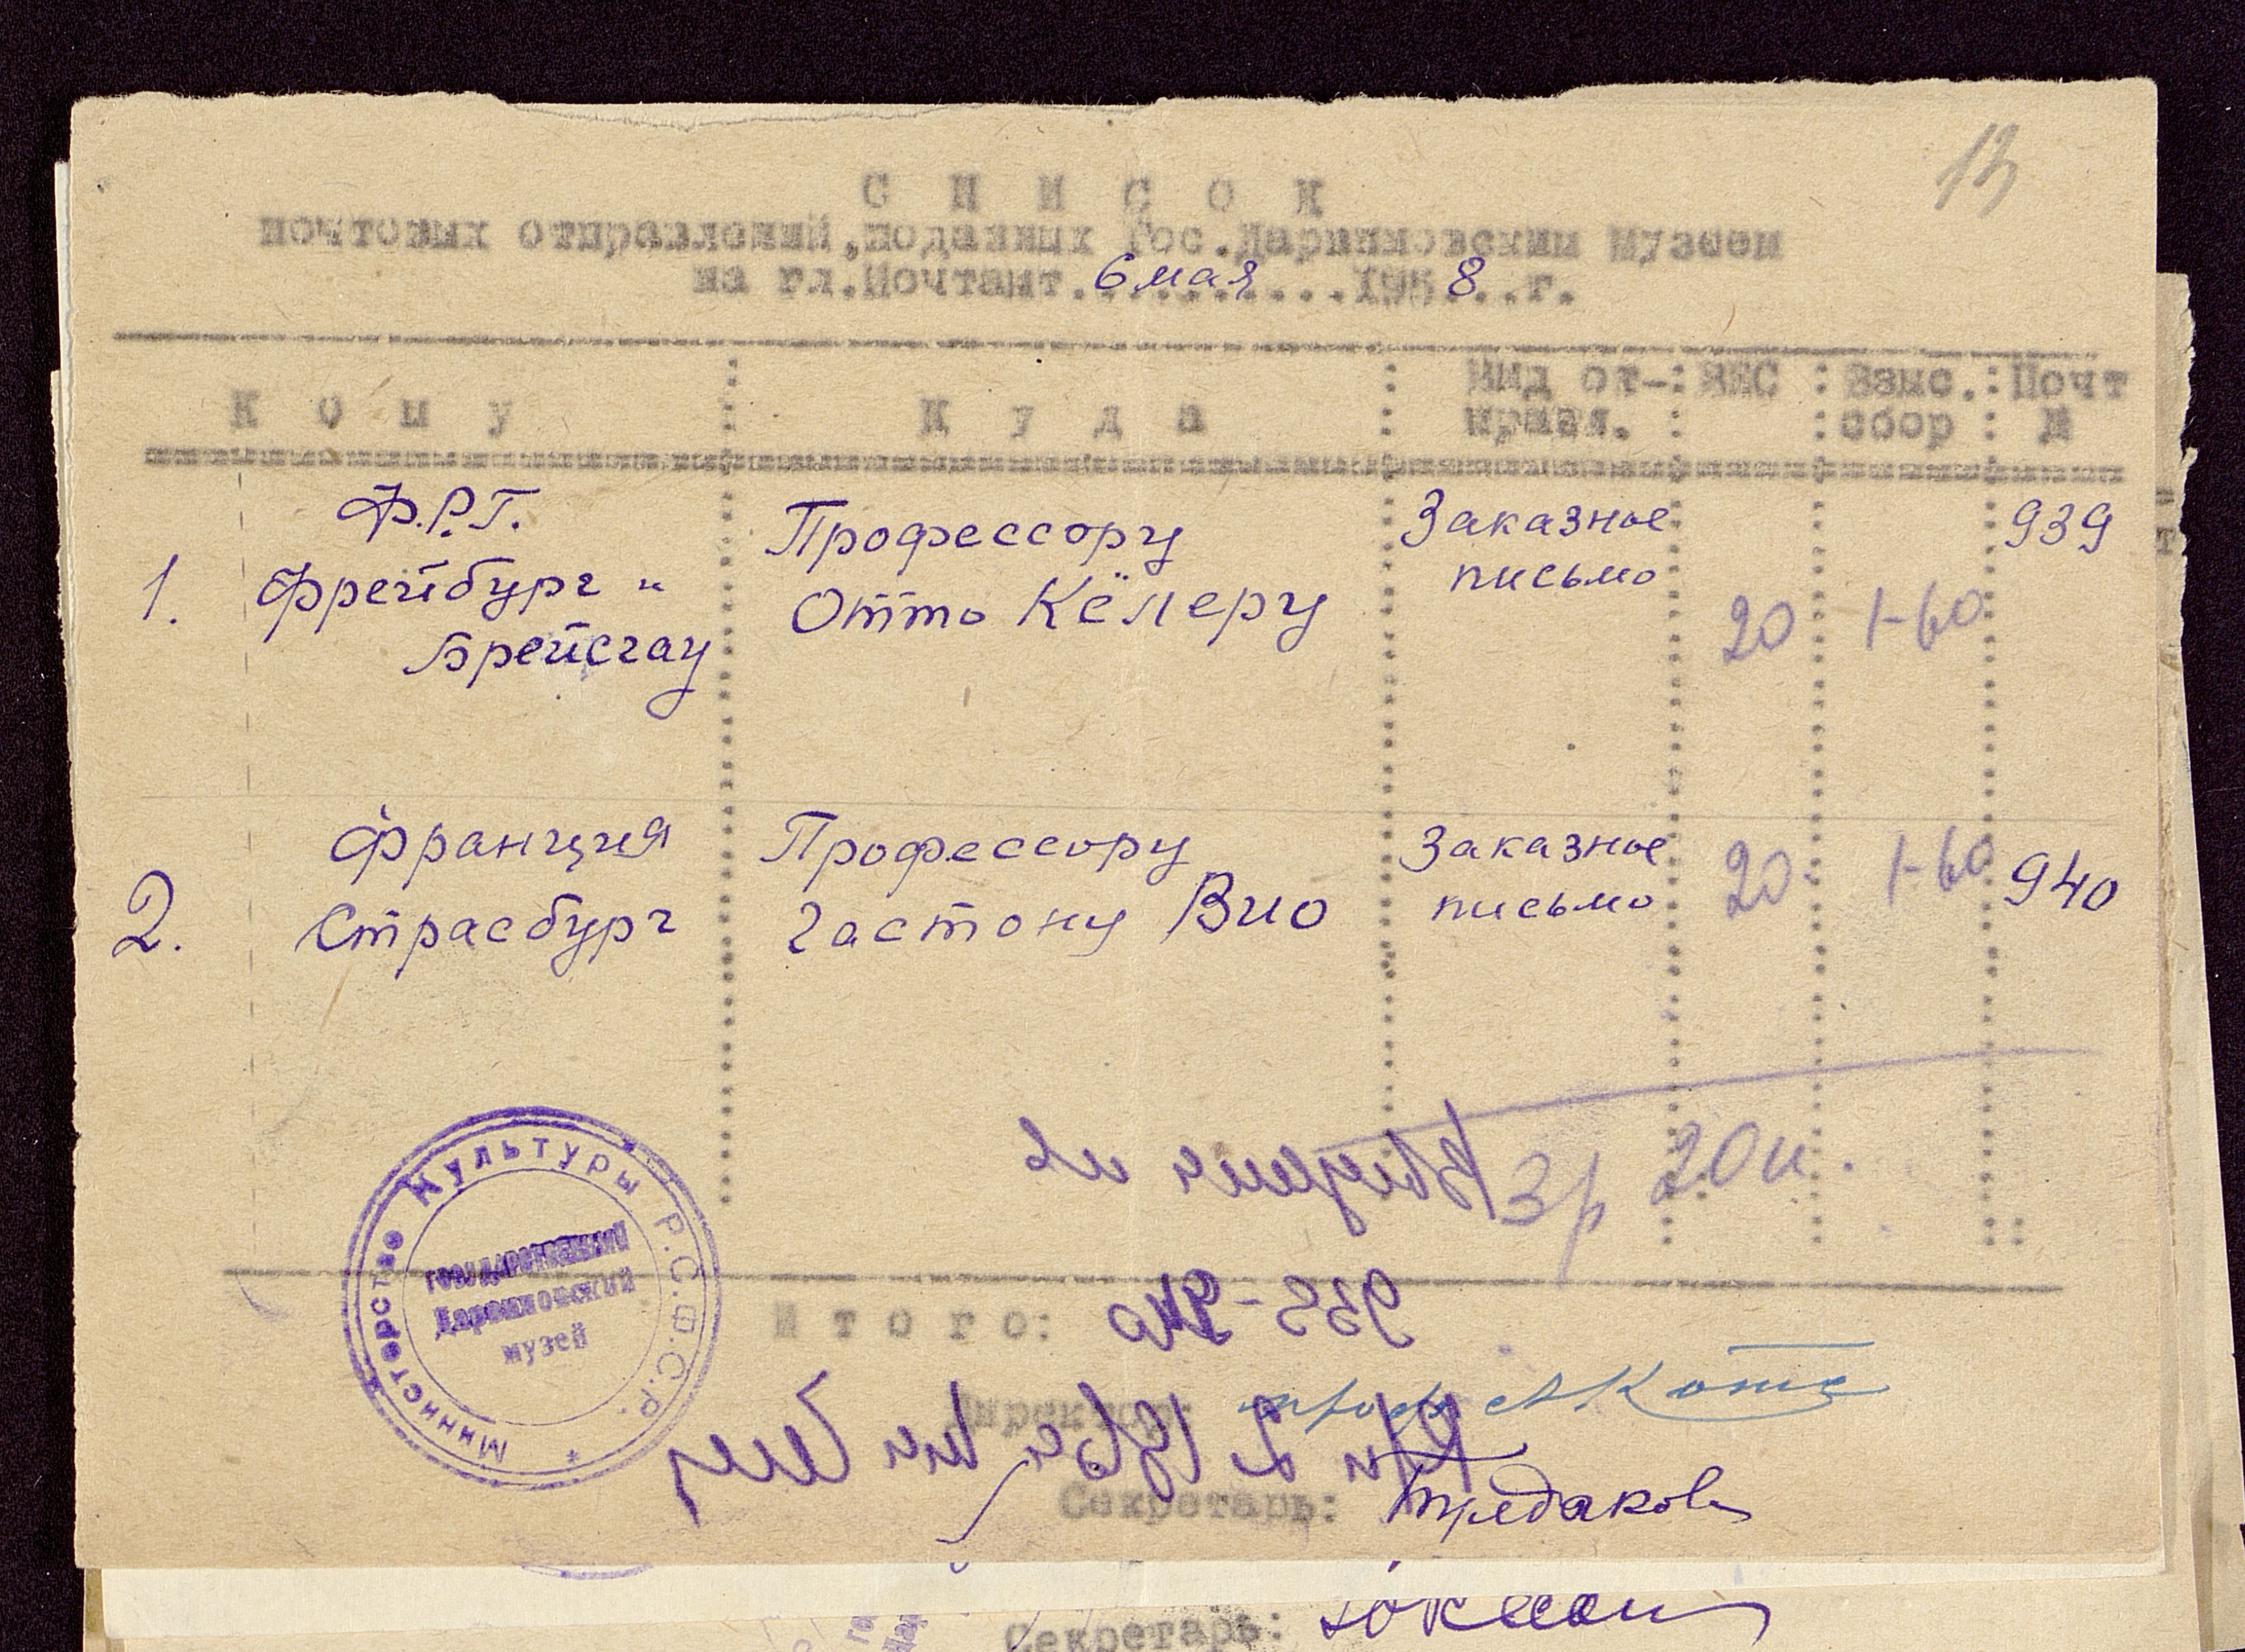 13
С П И С О К
почтовых отправлений, поданных Гос.Дарвиновским Музеем
на гл.Почтамт. 6 мая ......195 8 ..г.
К о м у : К у д а : Вид от- : ВЕС : Взыс. : Почт
правл. : : сбор : №
1. Ф.Р.Г. Профессору Заказное 939
Фрейбург " Отто Кёлеру письмо 20 1-60
Брейсгау
2. Франция Профессору Заказное 20 1-60 940
Страсбург Гастону Вио письмо
3р 20к.
И т о г о:
939-940
Директор: проф. А Котс
Секретарь: Тредакова
Министерство Культуры Р.С.Ф.С.Р.
ГОСУДАРСТВЕННЫЙ
Дарвиновский
музей
Секретарь: